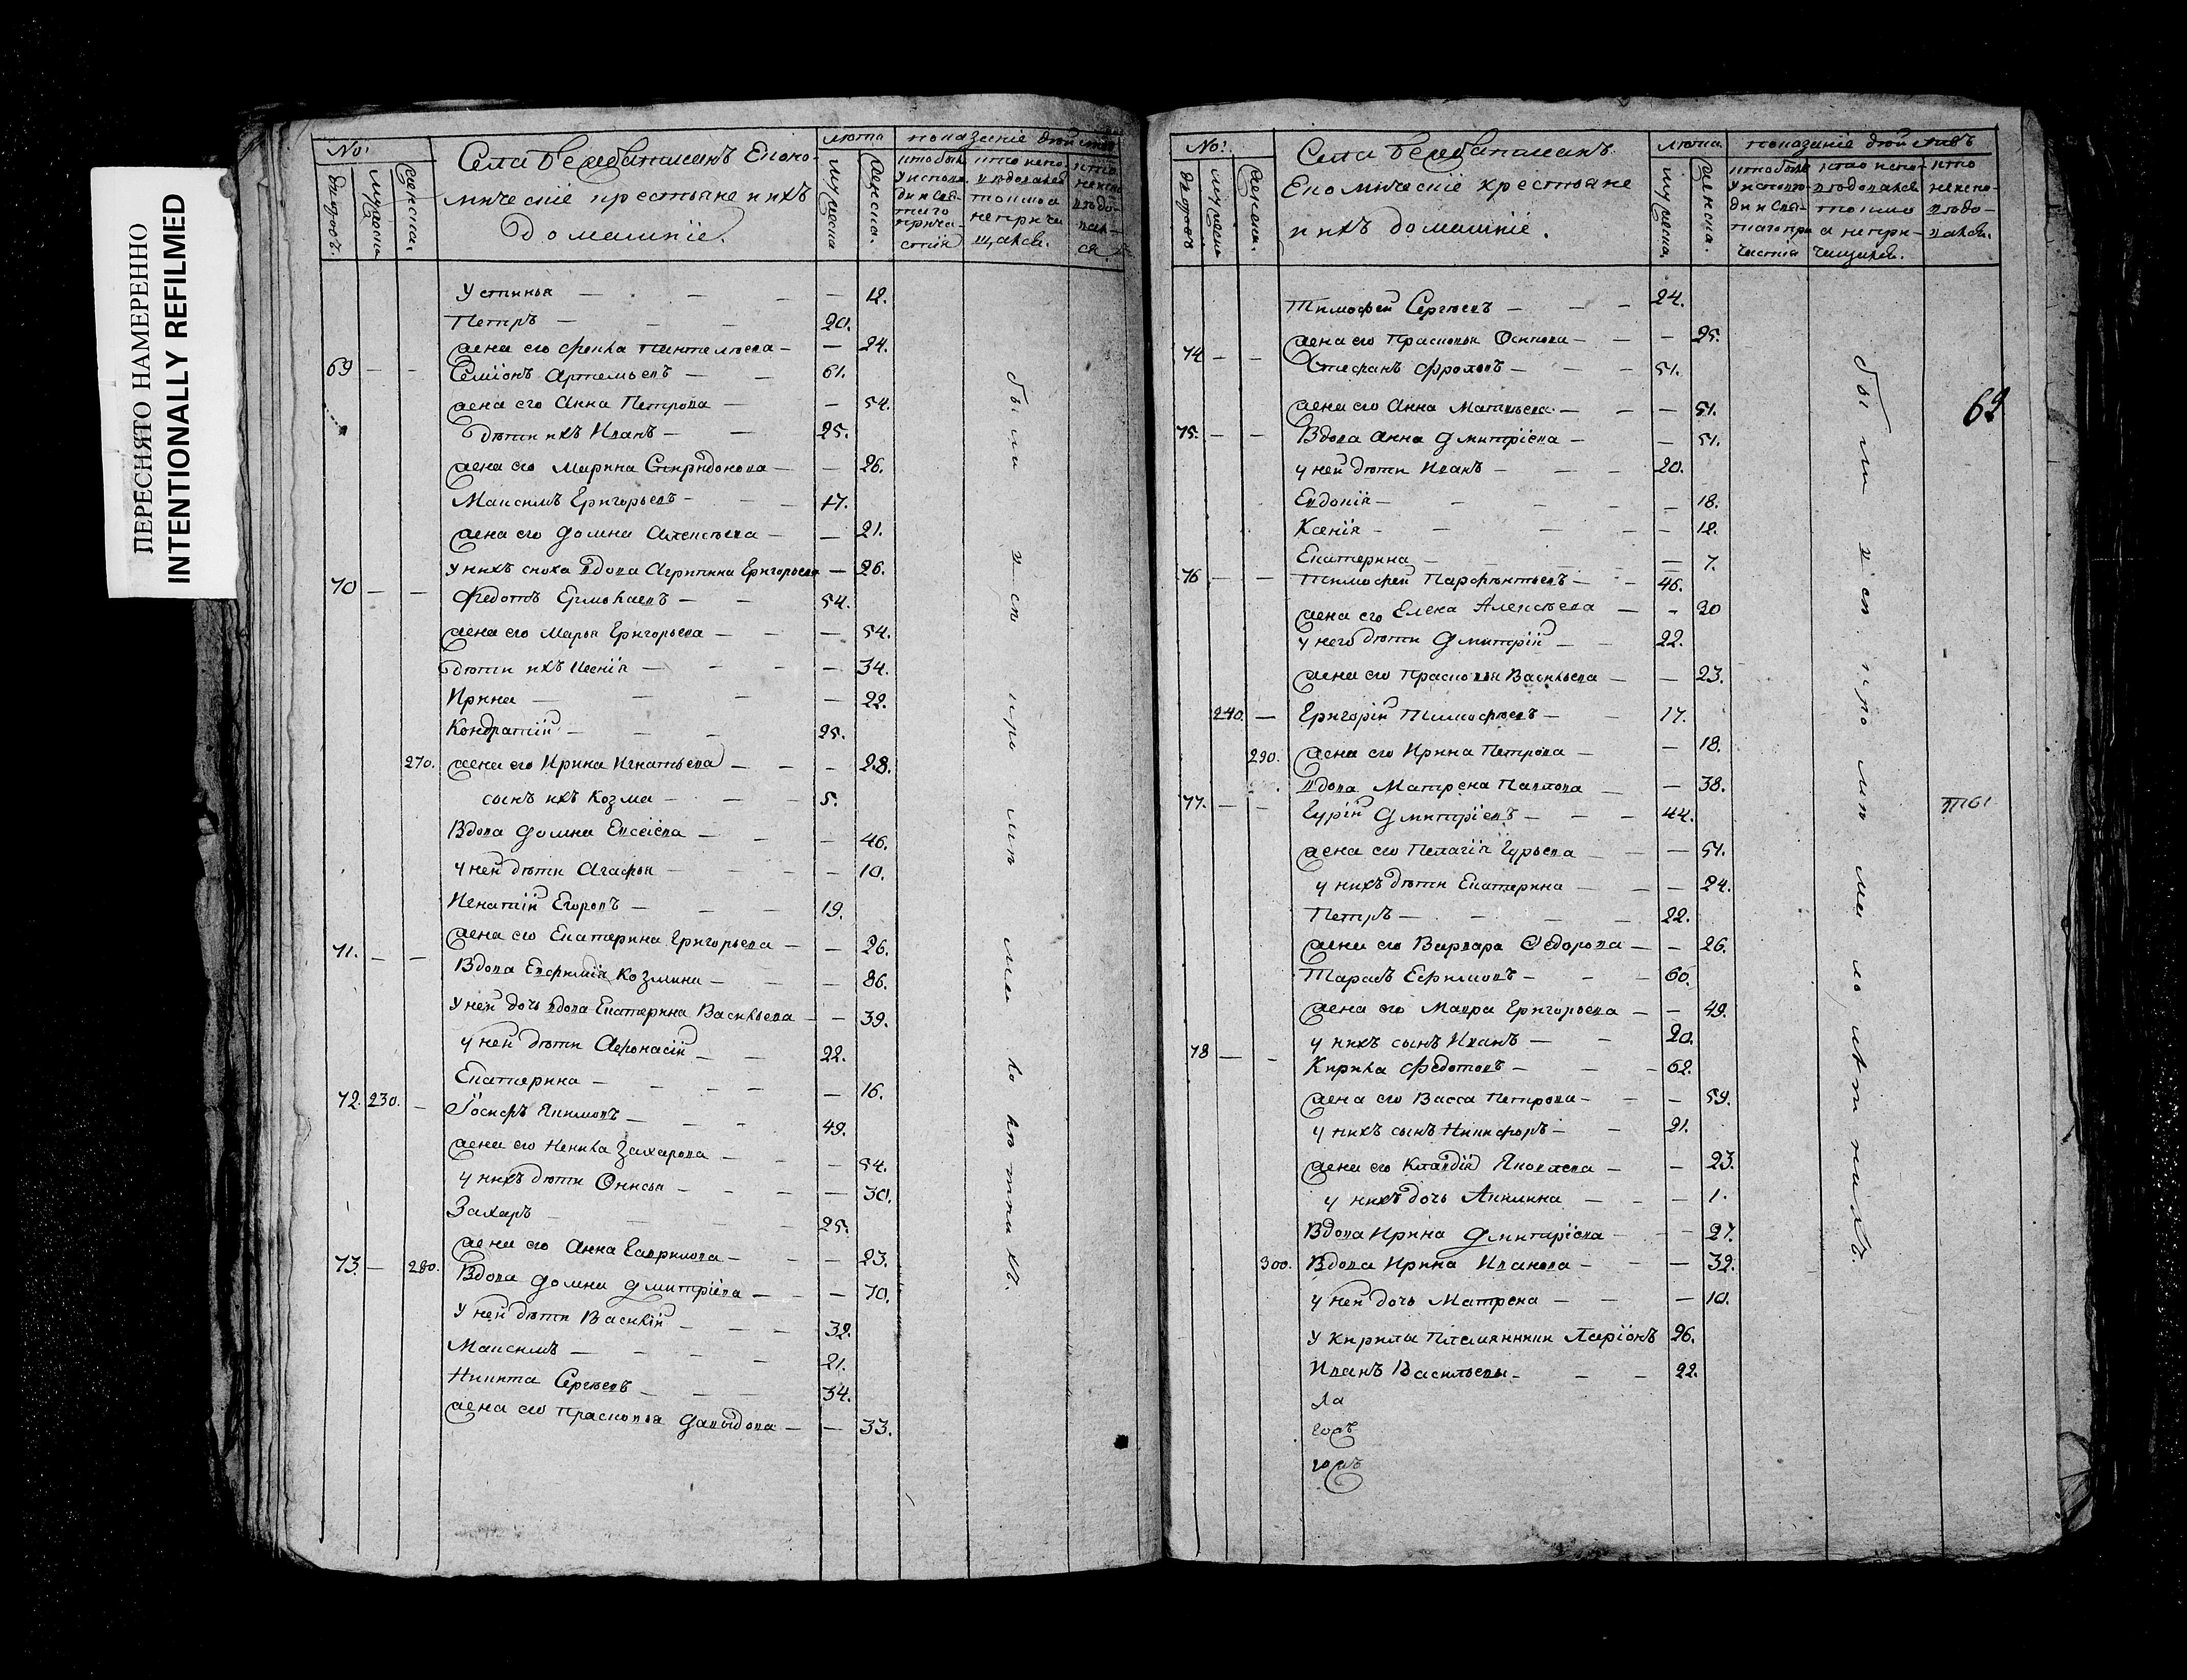 ПЕРЕСНЯТО НАМЕРЕННО
INTENTIONALLY REFILMED
No:
дворовъ.
мужеска
женска.
Села Еконо-
мическіе крестьяне и ихъ
домашніе.
лѣта
мужеска
женска.
показаніе
Устинья — — — — 12.
Петръ — — — 20.
жена его Фекла Пантелѣева — — 24.
69 — — Семіонъ Артемьевъ — — 61.
жена его Анна Петрова — — 54.
дѣти ихъ Иванъ — — 25.
жена его Марина Спиридонова — — 26.
Максимъ Григорьевъ — — 17.
жена его Домна Алексѣева — — 21.
у нихъ сноха вдова Агрипина Григорьева — 26.
70 — — Федотъ Ермолаевъ — — 54.
жена его Марья Григорьева — — — 54.
дѣти ихъ Ксенія — — — — 34.
Ирина — — — — 22.
Кондратій — — — 25.
270. жена его Ирина Игнатьева — — — 28.
сынъ ихъ Козма — — — 5.
Вдова Домна Евсеіева — — — 46.
у ней дѣти Агафья — — — — 10.
Игнатій Егоровъ — — — 19.
жена его Екатерина Григорьева — — 26.
71. — — Вдова Евфимія Козмина — — — 86.
у ней дочь вдова Екатерина Васильева — — 39.
у ней дѣти Афонасій — — 22.
Екатерина — — — — — 16.
72. 230. — Іосифъ Якимовъ — — — 49.
жена его Ненила Захарова — — — 54.
у нихъ дѣти Онисья — — — — 30.
Захаръ — — — — 25.
жена его Анна Гаврилова — — — 23.
73. — 280. Вдова Домна Дмитріева — — — 70.
у ней дѣти Василій — — — 32.
Максимъ — — — — 21.
Никита Сергѣевъ — — — 34.
жена его Прасковья Давыдова — — 33.
No:
дворовъ
мужеска
женска.
Села
Економическіе крестьяне
и ихъ домашніе.
лѣта.
мужеска,
женска.
показаніе
62
Тимофей Сергѣевъ — — — 24.
жена его Прасковья Осипова — — — 25.
74 — — Стефанъ Фроловъ — — — 51.
жена его Анна Матвѣева — — — 51.
75. — — Вдова Анна Дмитріева — — 51.
у ней дѣти Иванъ — — — 20.
Евдокія — — — — — 18.
Ксенія — — — — 12.
Екатерина — — — — — 7.
76 — — Тимофей Парфентьевъ — — 46.
жена его Елена Алексѣева — — 30
у него дѣти Дмитрій — — 22.
жена его Прасковья Васильева — — 23.
240. — Григорій Тимофѣевъ — — 17.
290. жена его Ирина Петрова — — 18.
вдова Матрена Павлова — — 38.
77. — — Гурій Дмитріевъ — — — 44.
жена его Пелагія Гурьева — — 51.
у нихъ дѣти Екатерина — — — 24.
Петръ — — — — 22.
жена его Варвара Ѳедорова — — 26.
Тарасъ Ефимовъ — — — 60.
жена его Мавра Григорьева — — 49.
у нихъ сынъ Иванъ — — 20.
78 — — Кирила Федотовъ — — — 62.
жена его Васса Петрова — — — 59.
у нихъ сынъ Никифоръ — — 21.
жена его Клавдія Яковлева — — 23.
у нихъ дочь Акилина — — — 1.
Вдова Ирина Дмитріева — — — 27.
300. Вдова Ирина Иванова — — — 32.
у ней дочь Матрена — — — 10.
у Кирилы племянники Ларіонъ 26.
Иванъ Васильевы — — — 22.